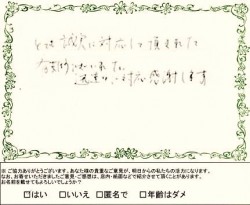 とても誠実に対応して頂きました
対応感謝します
※ご協力ありがとうございます。あなた様の貴重なご意見が、明日からの私たちの活力になります。
なお、お寄せいただきましたご意見・ご感想は、店内・紙面などで紹介させて頂くことがあります。
お名前を載せてもよろしいでしょうか?
□はい □いいえ □匿名で □年齢はダメ